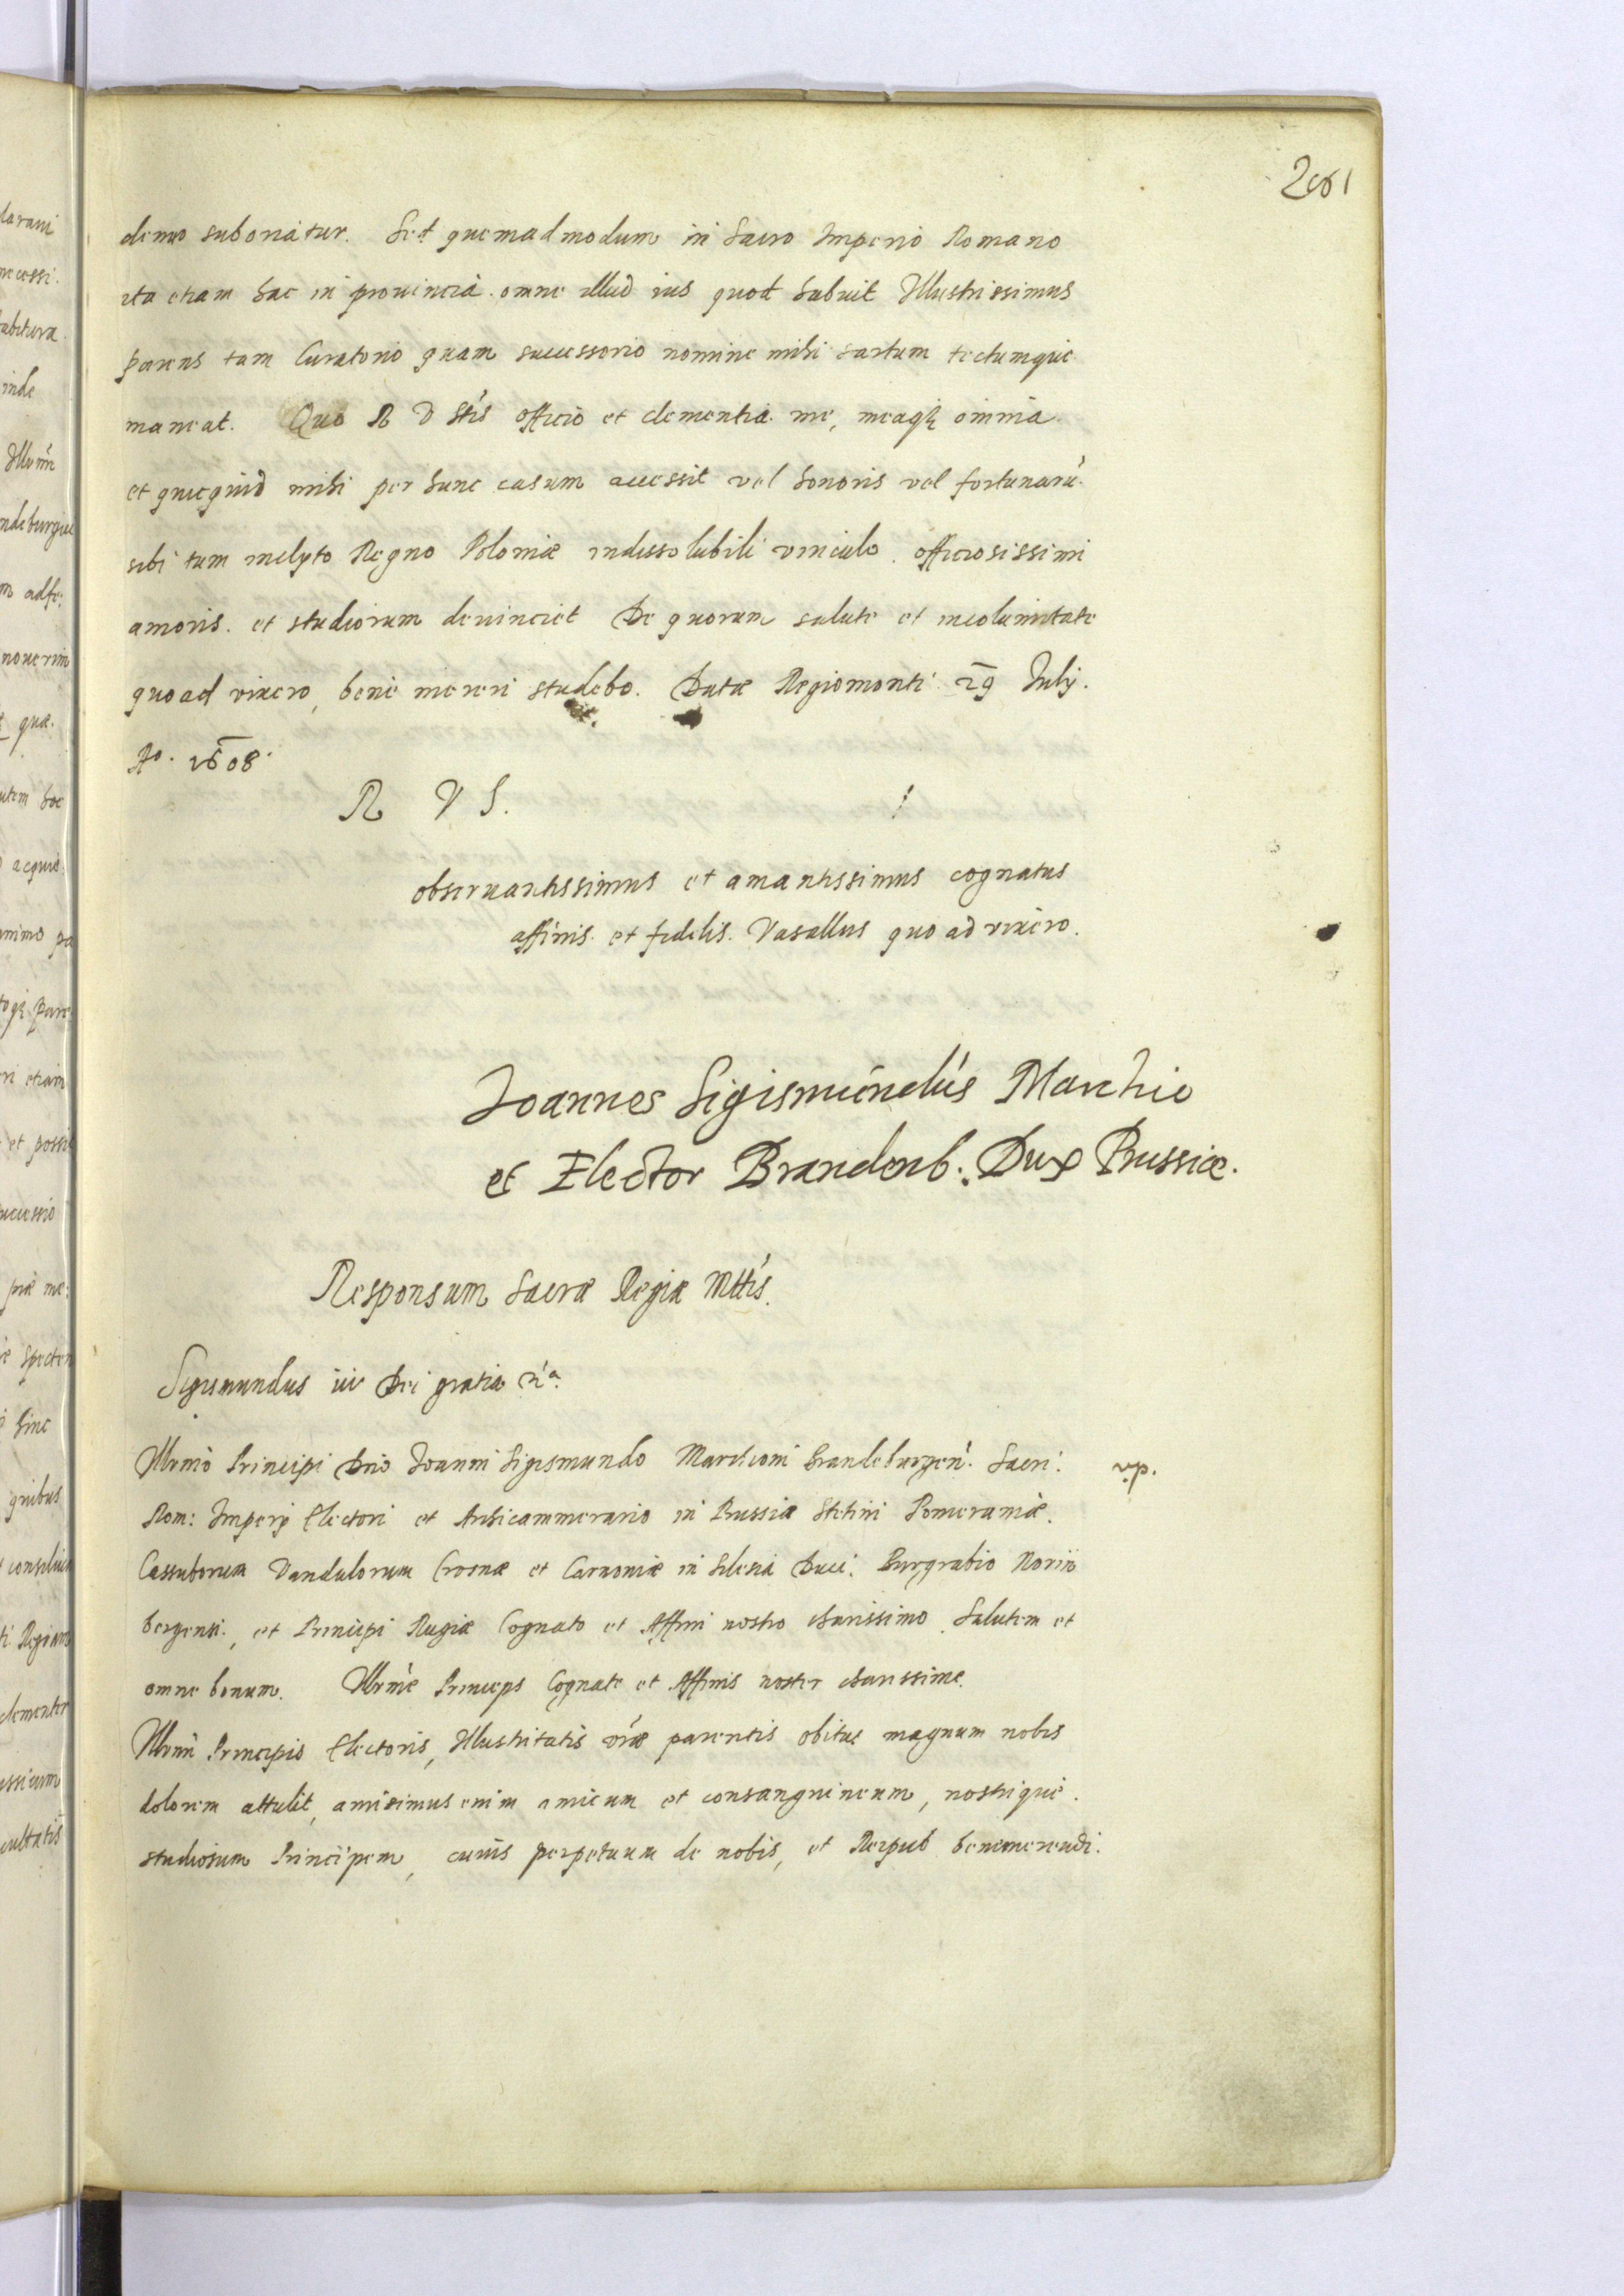 201
denuo suboriatur. Sed quemadmodum in Sacro Imperio Romano
ita etiam hac in prouincia omne illud ius quod habuit Illustrissimus
parens tam Curatorio quam successorio nomine mihi sartum tectumque
maneat. Quo R V Stis officio et clementia me, meaqz omnia
et quicquid mihi per hunc casum accessit vel honoris vel fortunarũ
sibi tum inclyto Regno Poloniæ indissolubili vinculo officiosissimi
amoris et studiorum deuinciet De quorum salute et incolumitate
quoad vixero, bene mereri studebo. Datæ Regiomonti 29 Julij.
Ao. 1608.
R V S.
obseruantissimus et amantissimus cognatus
affinis et fidelis Vasallus quo ad vixero.
Joannes Sigismúndús Marchio
et Elector Brandenb: Dux Prussiæ.
Responsum Sacræ Regiæ Mttis.
Sigismundus iii Dei gratia
Illrmo Principi Dno Joanni Sigismundo Marchioni Brandeburgen: Sacri: v.p.
Rom: Imperij Electori et Archicammerario in Prussia Stetini Pomeraniæ
Cassuborum Vandalorum Crosnæ et Carnoniæ in Silesia Duci: Burgrabio Norim
bergensi, et Principi Rugiæ Cognato et Affini nostro charissimo Salutem et
omne bonum. Illrme Princeps Cognate et Affinis noster charissime.
Illrmi Principis Electoris, Illustritatis vræ parentis obitus magnum nobis
dolorem attulit, amisimus enim amicum et consanguineum, nostrique
studiosum Principem, cuius perpetuum de nobis, et Reipub benemerendi.